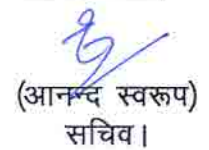 (आनन्द स्वरूप)
सचिव।